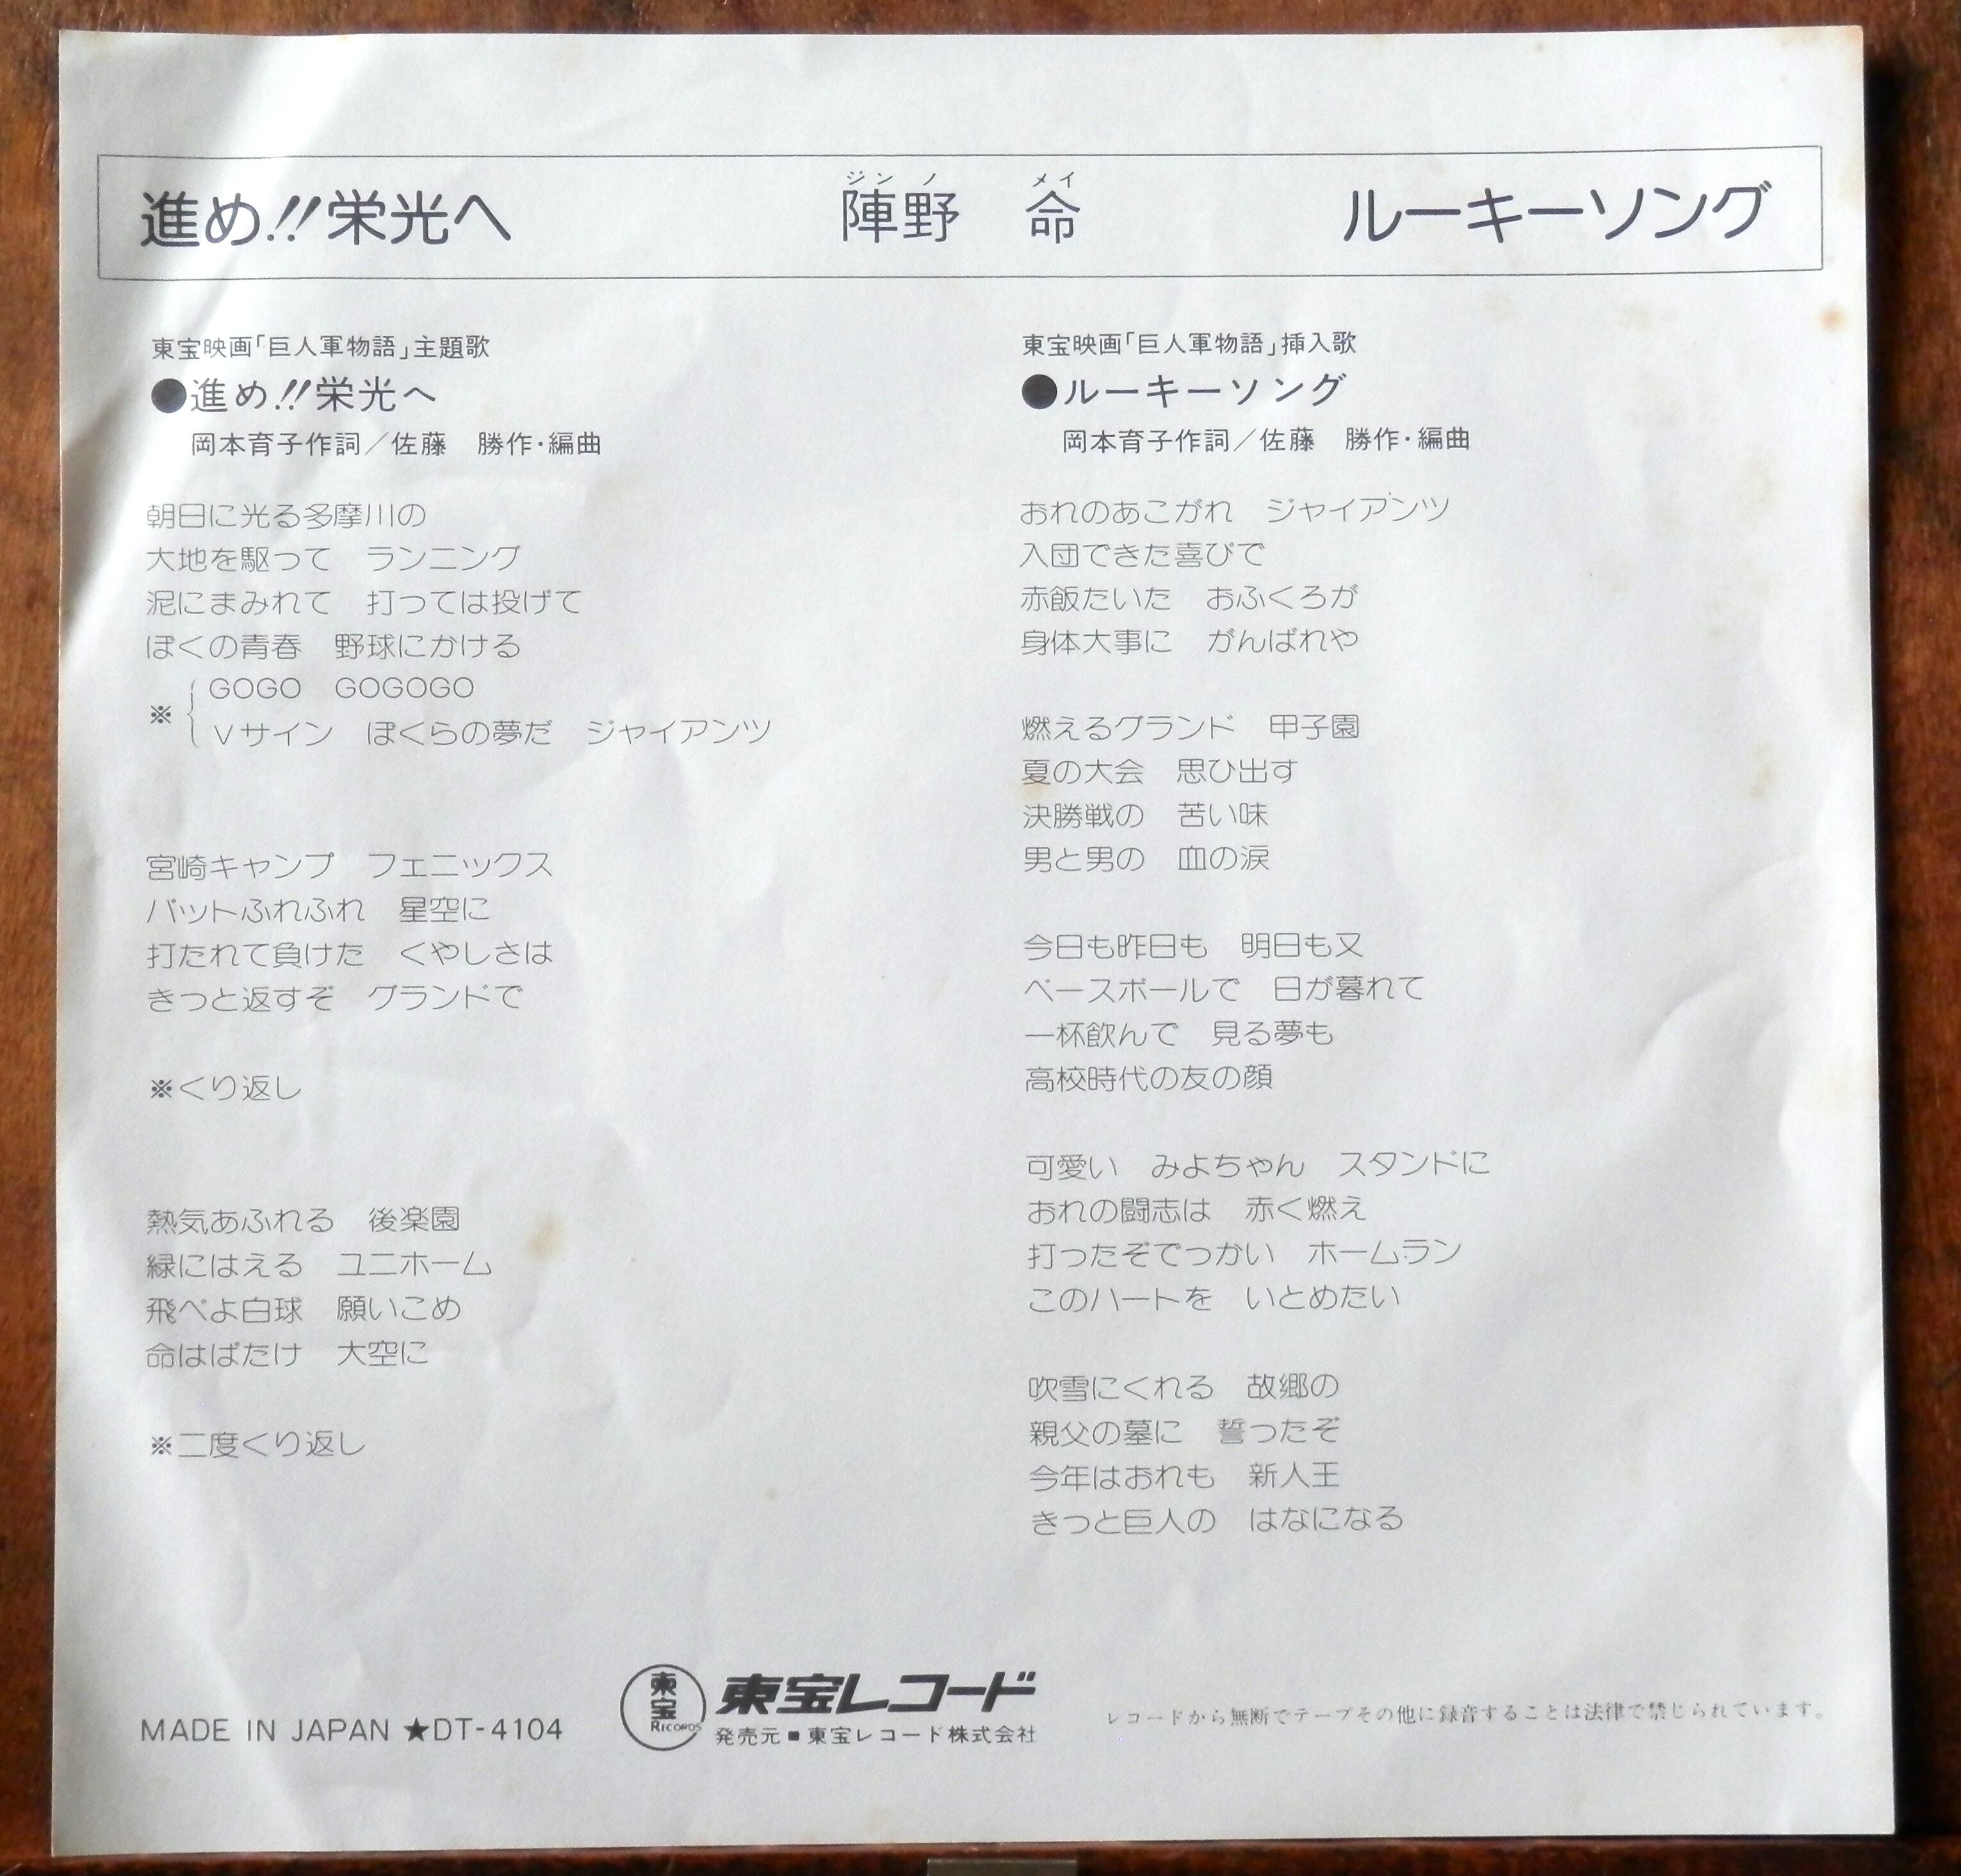 進め!!栄光へ　陣野　命　ルーキーソング
ジンノ　メイ
東宝映画「巨人軍物語」主題歌
●進め!!栄光へ
岡本育子作詞／佐藤　勝作・編曲
朝日に光る多摩川の
大地を駆って　ランニング
泥にまみれて　打っては投げて
ぼくの青春　野球にかける
※GOGO　GOGOGO
Vサイン　ぼくらの夢だ　ジャイアンツ
宮崎キャンプ　フェニックス
バットふれふれ　星空に
打たれて負けた　くやしさは
きっと返すぞ　グランドで
※くり返し
熱気あふれる　後楽園
緑にはえる　ユニホーム
飛べよ白球　願いこめ
命はばたけ　大空に
※二度くり返し
東宝映画「巨人軍物語」挿入歌
●ルーキーソング
岡本育子作詞／佐藤　勝作・編曲
おれのあこがれ　ジャイアンツ
入団できた喜びで
赤飯たいた　おふくろが
身体大事に　がんばれや
燃えるグランド　甲子園
夏の大会　思ひ出す
決勝戦の　苦い味
男と男の　血の涙
今日も昨日も　明日も又
ベースボールで　日が暮れて
一杯飲んで　見る夢も
高校時代の友の顔
可愛い　みよちゃん　スタンドに
おれの闘志は　赤く燃え
打ったぞでっかい　ホームラン
このハートを　いとめたい
吹雪にくれる　故郷の
親父の墓に　誓ったぞ
今年はおれも　新人王
きっと巨人の　はなになる
MADE IN JAPAN ★DT-4104
東宝 RECORDS
東宝レコード
発売元■東宝レコード株式会社
レコードから無断でテープその他に録音することは法律で禁じられています。